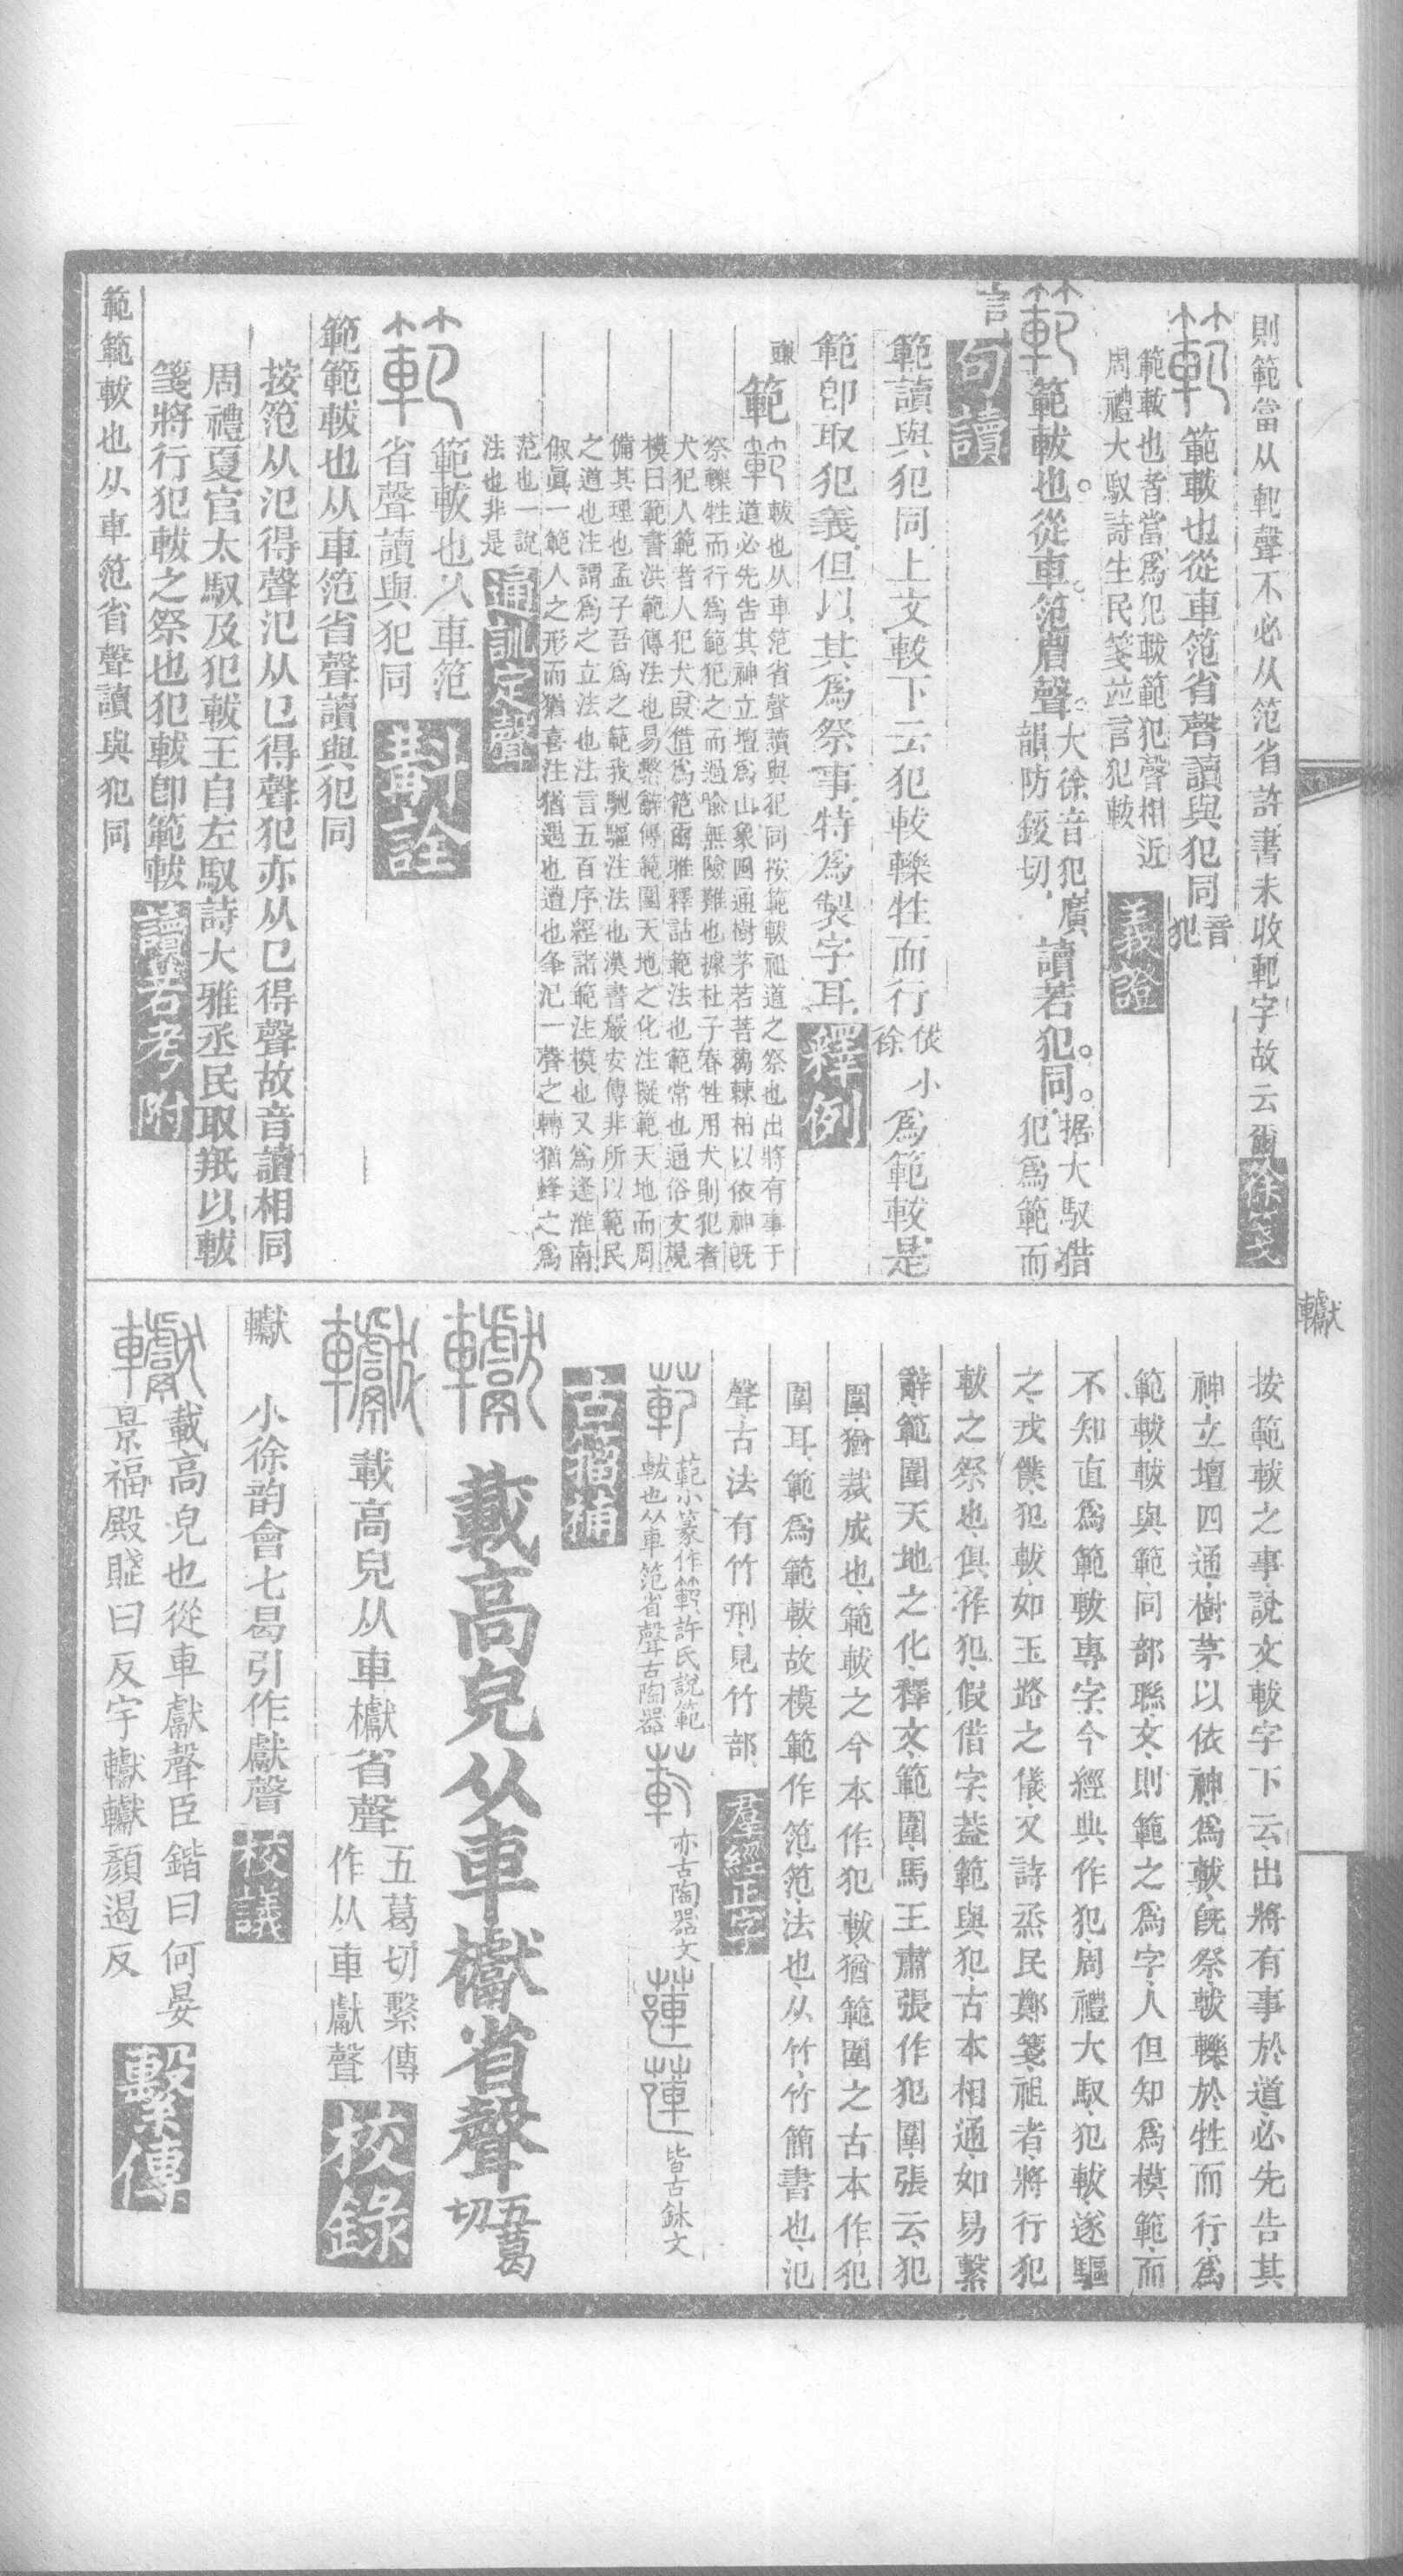 則範當从軓聲不必从笵省許書未收軓字故云爾徐箋
範軷也從車笵省聲讀與犯同音犯
範軷也者當爲犯軷範犯聲相近
周禮大馭詩生民箋竝言犯軷義證
範軷也從車笵省聲大徐音犯廣韻防鋄切讀若犯同据大馭借犯爲範而言句讀
範讀與犯同上文軷下云犯軷轢牲而行從小徐爲範軷是
範卽取犯義但以其爲祭事特爲製字耳釋例
謙範
軷也从車笵省聲讀與犯同按範軷祖道之祭也出將有事于
道必先告其神立壇爲山象四通樹茅若菩蒭棘柏以依神旣
祭轢牲而行爲範犯之而過喻無險難也據杜子春牲用犬則犯者
犬犯人範者人犯犬叚借爲笵爾雅釋詁範法也範常也通俗文規
模曰範書洪範傳法也易繫辭傳範圍天地之化注擬範天地而周
備其理也孟子吾爲之範我馳驅注法也漢書嚴安傳非所以範民
之道也注謂爲之立法也法言五百序經諸範注模也又爲逢淮南
俶眞一範人之形而猶喜注猶遇也遭也夆氾一聲之轉猶蜂之爲
范也一說
法也非是通訓定聲
範軷也从車笵
省聲讀與犯同斠詮
範範軷也从車笵省聲讀與犯同
按笵从氾得聲氾从㔾得聲犯亦从㔾得聲故音讀相同
周禮夏官太馭及犯軷王自左馭詩大雅丞民取羝以軷
箋將行犯軷之祭也犯軷卽範軷讀若考附
範範軷也从車笵省聲讀與犯同
轞
按範軷之事說文軷字下云出將有事於道必先告其
神立壇四通樹茅以依神爲軷旣祭軷轢於牲而行爲
範軷軷與範同部聯文則範之爲字人但知爲模範而
不知直爲範軷專字今經典作犯周禮大馭犯軷遂驅
之戎僕犯軷如玉路之儀又詩烝民鄭箋祖者將行犯
軷之祭也俱作犯假借字蓋範與犯古本相通如易繫
辭範圍天地之化釋文範圍馬王肅張作犯圍張云犯
圍猶裁成也範軷之今本作犯軷猶範圍之古本作犯
圍耳範爲範軷故模範作笵笵法也从竹竹簡書也氾
聲古法有竹刑見竹部羣經正字
範小篆作範許氏說範
軷也从車笵省聲古陶器
亦古陶器文
皆古鉥文
古籀補
載高皃从車櫱省聲五葛切
載高皃从車櫱省聲五葛切繫傳作从車獻聲校錄
轞小徐韵會七曷引作獻聲校議
載高皃也從車獻聲臣鍇曰何晏
景福殿賦曰反宇轞轞顏遏反繫傳